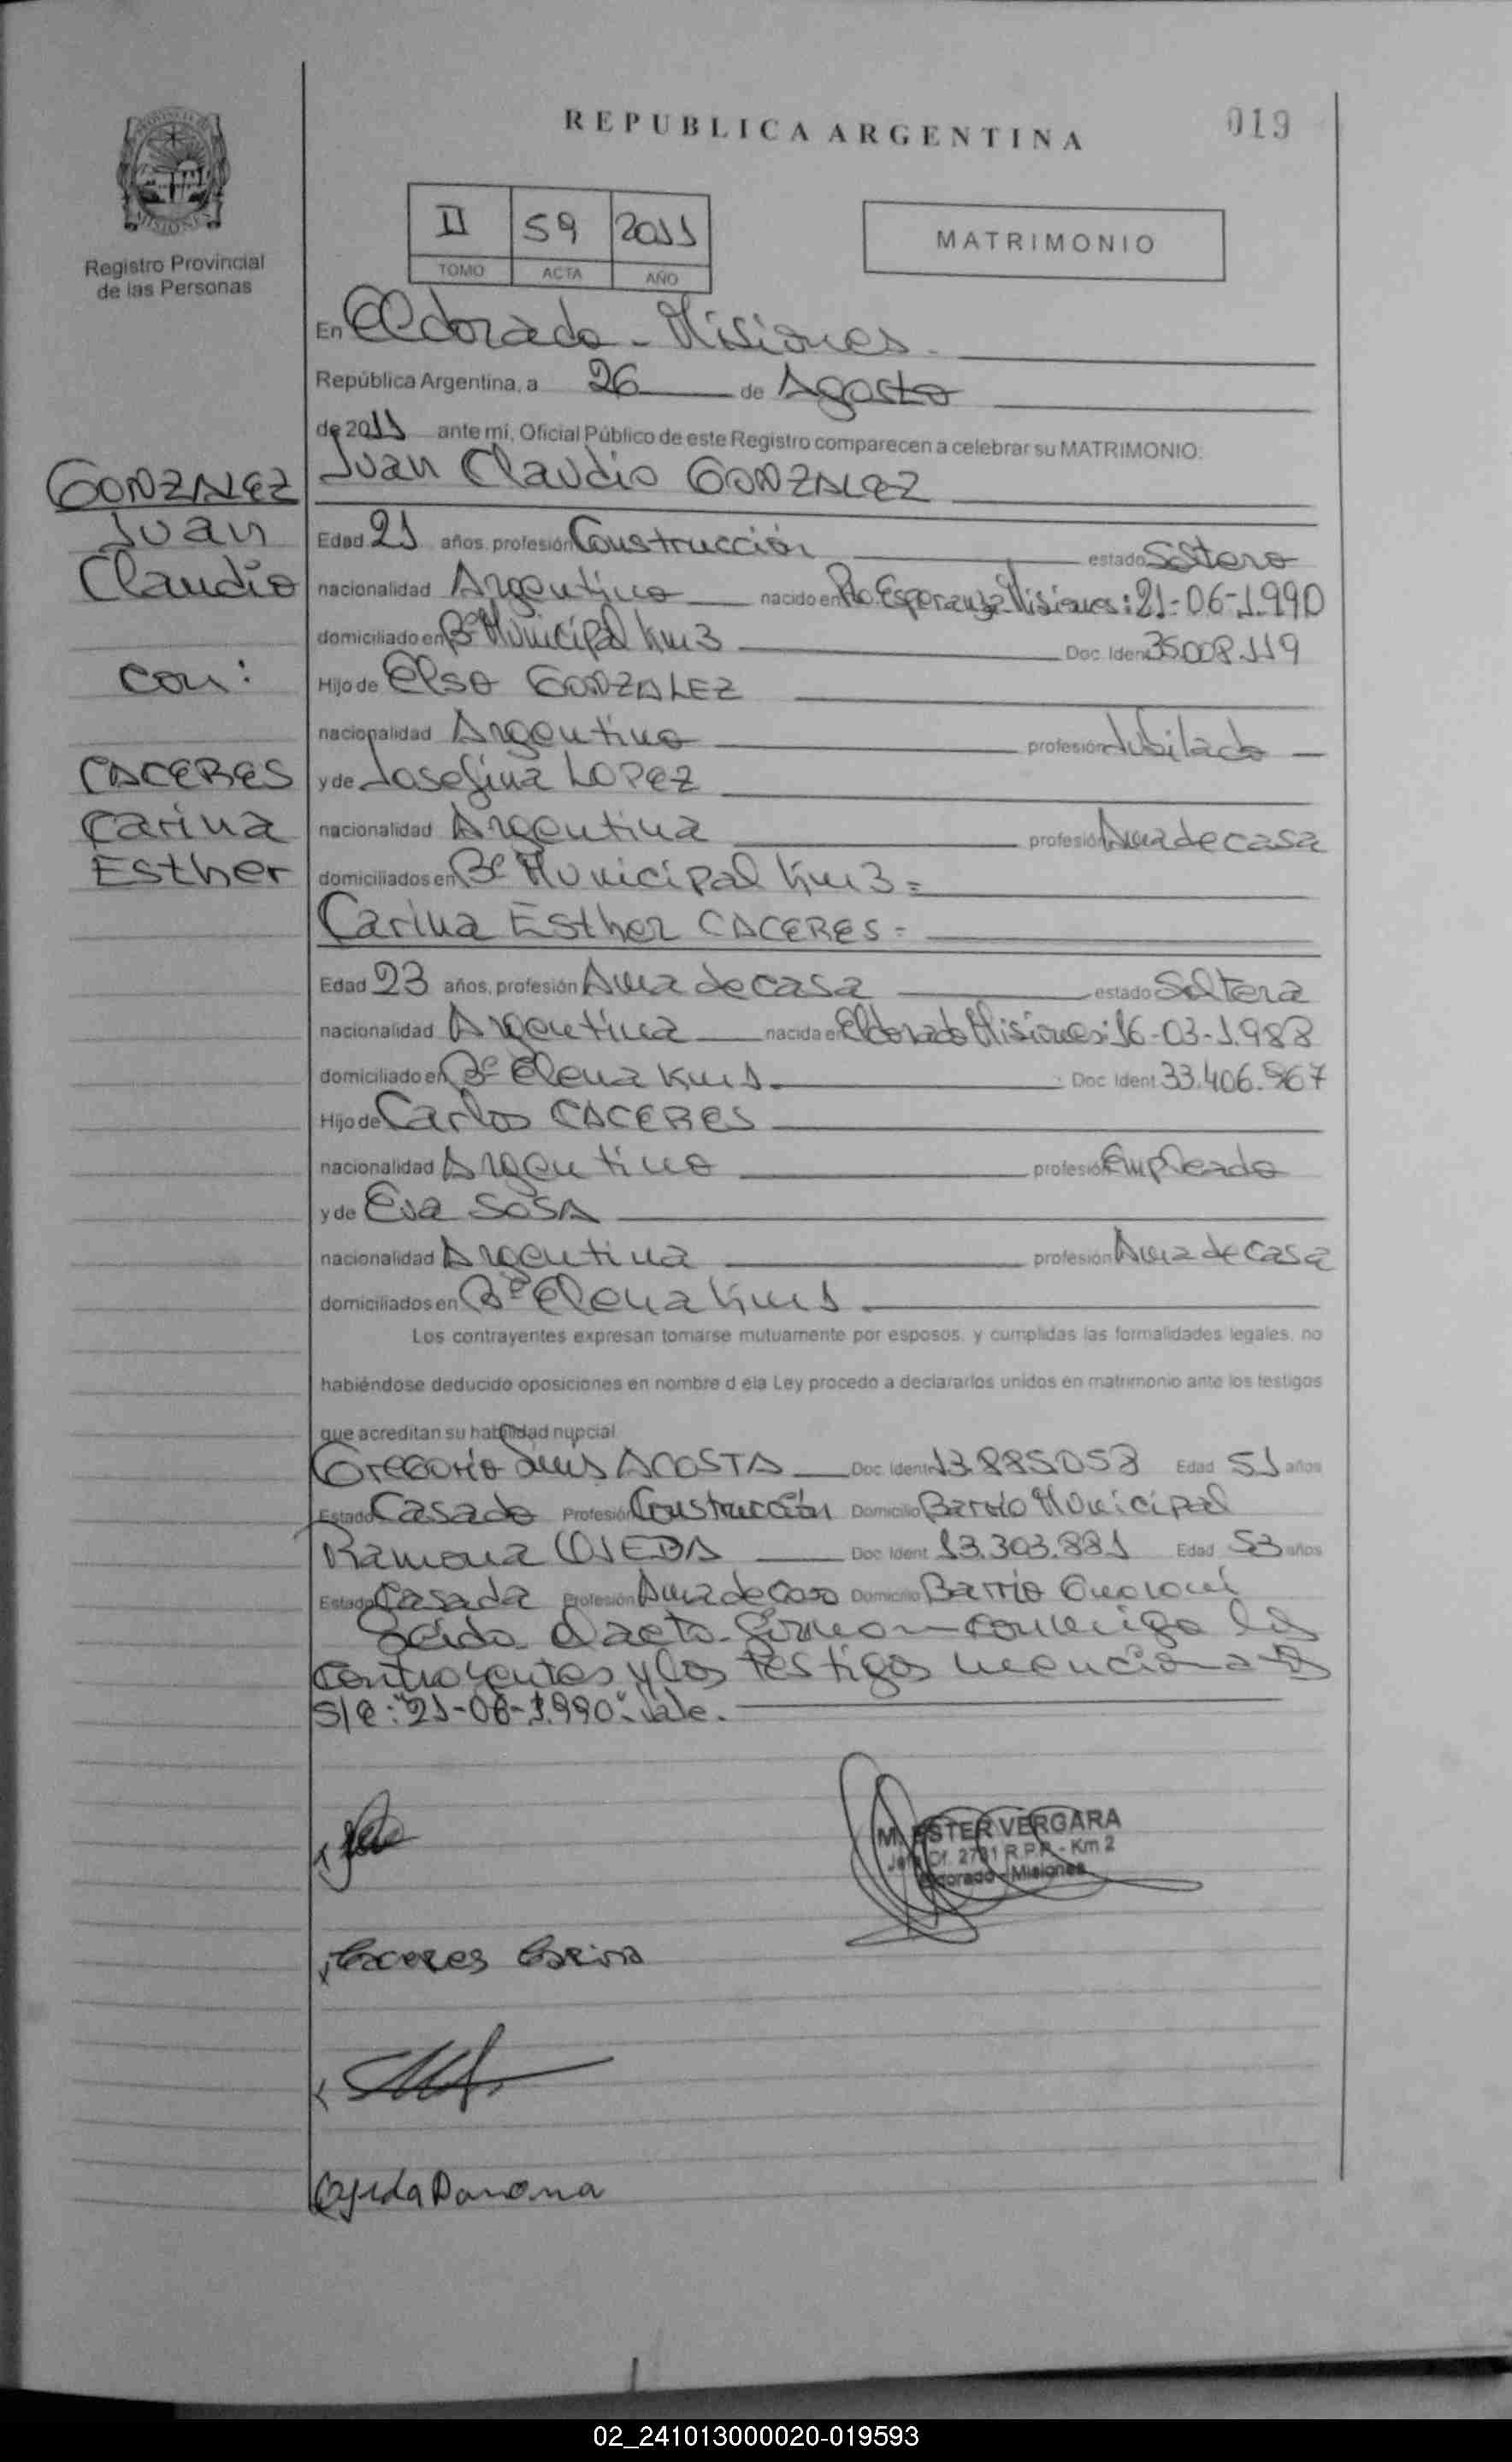 REPUBLICA ARGENTINA
019
PROVINCIA DE
MISIONES
Registro Provincial
de las Personas
II 59 2011
TOMO ACTA AÑO
MATRIMONIO
En Eldorado - Misiones.
República Argentina, a 26 de Agosto
de 2011 ante mí, Oficial Público de este Registro comparecen a celebrar su MATRIMONIO:
GONZALEZ
Juan
Claudio
con:
CACERES
Carina
Esther
Juan Claudio GONZALEZ
Edad 21 años, profesión Construcción estado Soltero
nacionalidad Argentino nacido en Pto. Esperanza Misiones: 21-06-1.990
domiciliado en Bº Municipal Km 3 Doc Ident 35.008.119
Hijo de Elso GONZALEZ
nacionalidad Argentino profesión Jubilado
y de Josefina LOPEZ
nacionalidad Argentina profesión Ama de casa
domiciliados en Bº Municipal Km 3 =
Carina Esther CACERES =
Edad 23 años, profesión Ama de casa estado Soltera
nacionalidad Argentina nacida en Eldorado Misiones: 16-03-1.988
domiciliado en Bº Elena Km 1. Doc Ident. 33.406.567
Hijo de Carlos CACERES
nacionalidad Argentino profesión Empleado
y de Eva SOSA
nacionalidad Argentina profesión Ama de casa
domiciliados en Bº Elena Km 1
Los contrayentes expresan tomarse mutuamente por esposos, y cumplidas las formalidades legales, no
habiéndose deducido oposiciones en nombre d ela Ley procedo a declararlos unidos en matrimonio ante los testigos
que acreditan su habilidad nupcial
Gregorio Luis ACOSTA Doc. Ident 13.885.053 Edad 51 años
Estado Casado Profesión Construcción Domicilio Barrio Municipal
Ramona OJEDA Doc Ident 13.303.881 Edad 53 años
Estado Casada Profesión Ama de Casa Domicilio Barrio Guaraní
Leída el acta firman conmigo los
contrayentes y los testigos mencionados
S/R: "21-06-1.990": Vale.
M. ESTER VERGARA
Jefe Of. 2791 R.P.P. - Km 2
Eldorado - Misiones
Caceres Carina
Ojeda Ramona
02_241013000020-019593